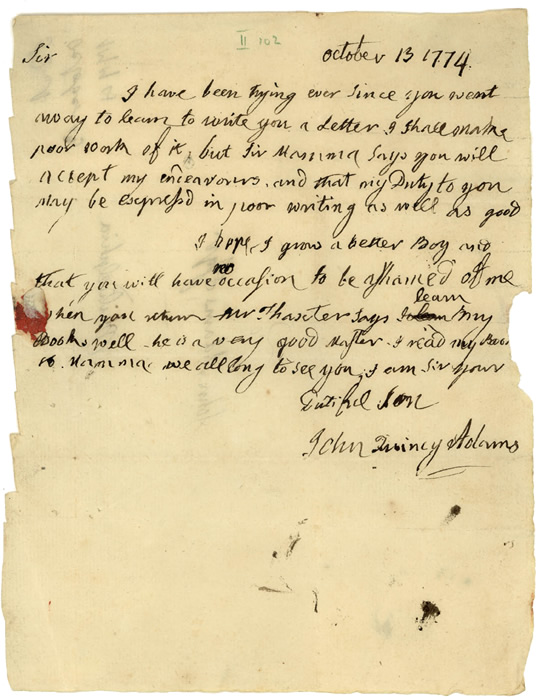 II 102
Sir October 13 1774.
I have been trying ever since you went
away to learn to write you a Letter I shall make
poor work of it, but Sir Mamma says you will
accept my endeavours, and that my Duty to you
may be expressd in poor writing as well as good
I hope I grow a better Boy and
that you will have no occasion to be ashamed of me
when you return Mr Thaxter says I learn my
Book well he is a very good Master I read my Books
to Mamma. we all long to see you I am Sir your
Dutiful Son
John Quincy Adams